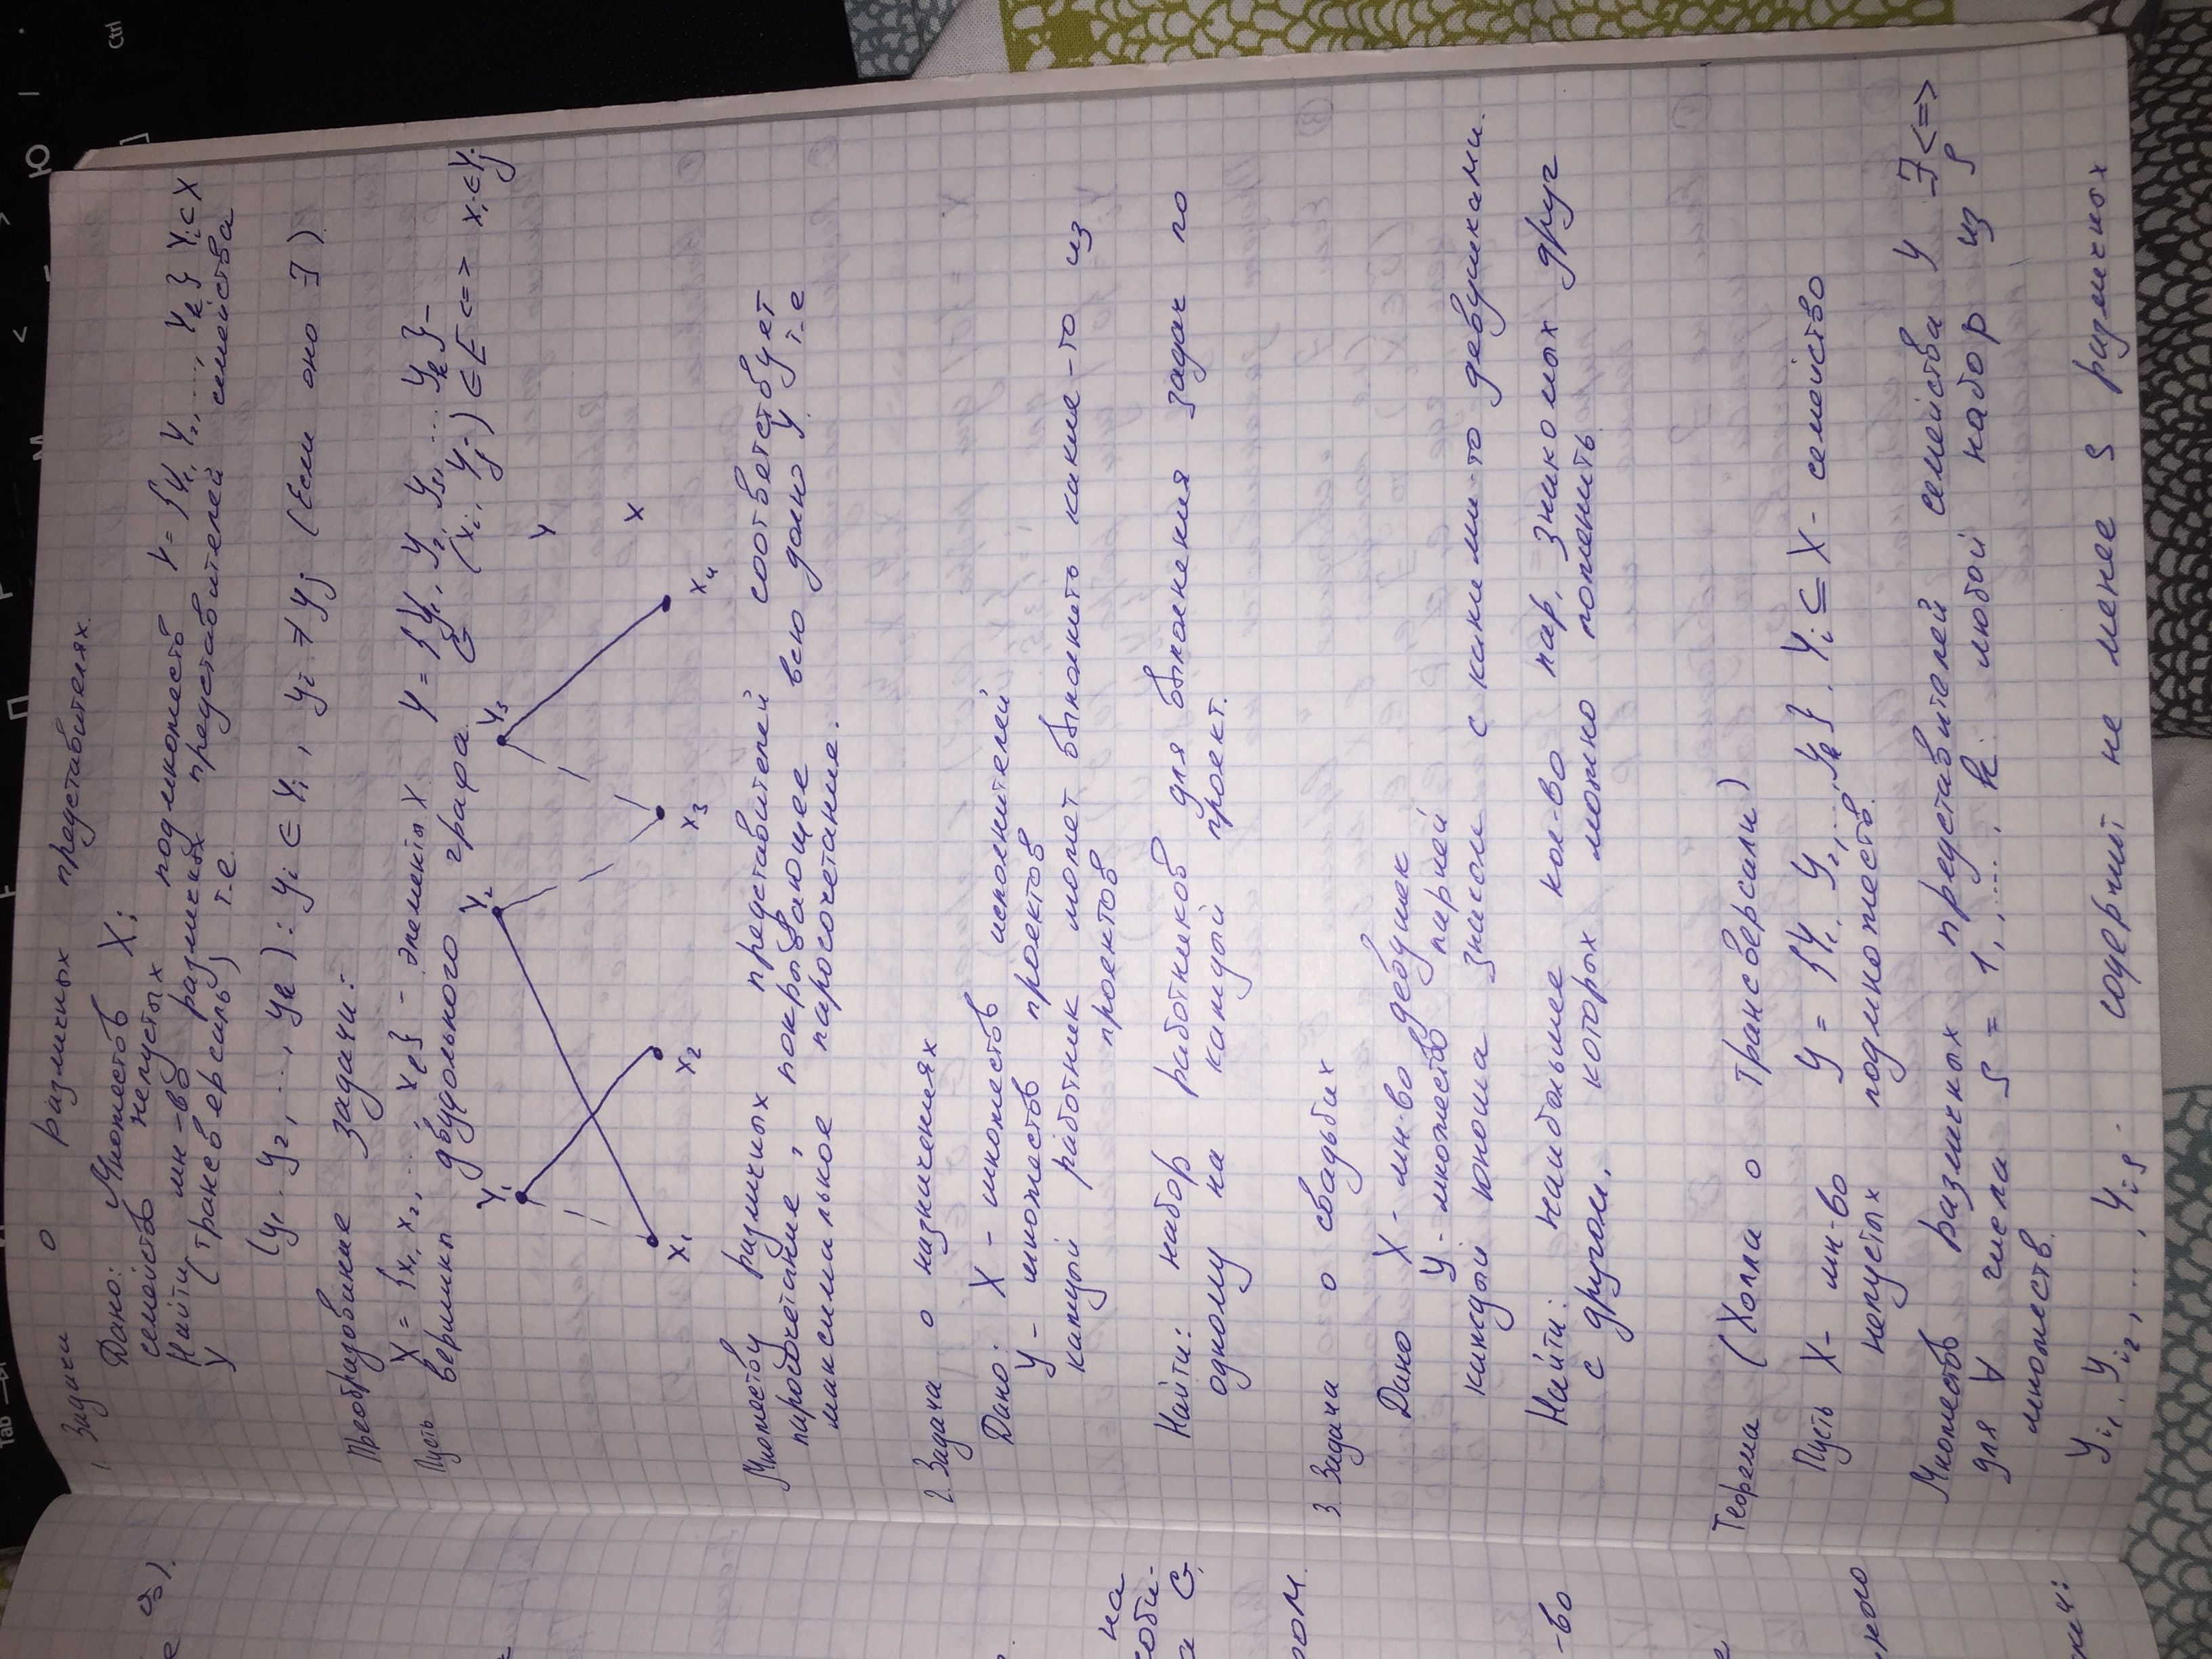 Tab
Ю
Ctrl
1. Задача о различных представителях.
Дано: Множеств X;
семейство непустых подмножеств Y = {Y₁, Y₂, ..., Yₖ} Yᵢ ⊂ X
Найти мн-во различных представителей семейства
Y (трансверсаль) т.е.
(y₁, y₂, ..., yₖ): yᵢ ∈ Yᵢ, yᵢ ≠ yⱼ (Если оно ∃).
Преобразование задачи:
Пусть X = {x₁, x₂, ..., xₗ} - элементы X Y = {Y₁, Y₂, Y₃, ... Yₖ} -
вершины двудольного графа. G (xᵢ, Yⱼ) ∈ E <=> xᵢ ∈ Yⱼ
Y₁ Y₂ Y₃
Y
X
x₁ x₂ x₃ x₄
Множеству различных представителей соответствует
паросочетание, покрывающее всю долю Y. т.е
максимальное паросочетание.
2. Задача о назначениях
Дано: X - множеств исполнителей
Y - множеств проектов
каждый работник может выполнить какие-то из
проектов
Найти: набор работников для выполнения задач по
одному на каждый проект.
3. Задача о свадьбах
Дано X - мн-во девушек
Y - множество парней
каждый юноша знаком с какими-то девушками.
Найти: наибольшее кол-во пар, знакомых друг
с другом, которых можно поженить.
Теорема (Холла о трансверсали)
Пусть X - мн-во Y = {Y₁, Y₂, ..., Yₖ}, Yᵢ ⊆ X - семейство
непустых подмножеств.
Множеств различных представителей семейства Y ∃ <=>
для ∀ числа S = 1, ..., k: любой набор из S
множеств.
Yᵢ₁, Yᵢ₂, ..., Yᵢₛ - содержит не менее S различных
на
G,
-во